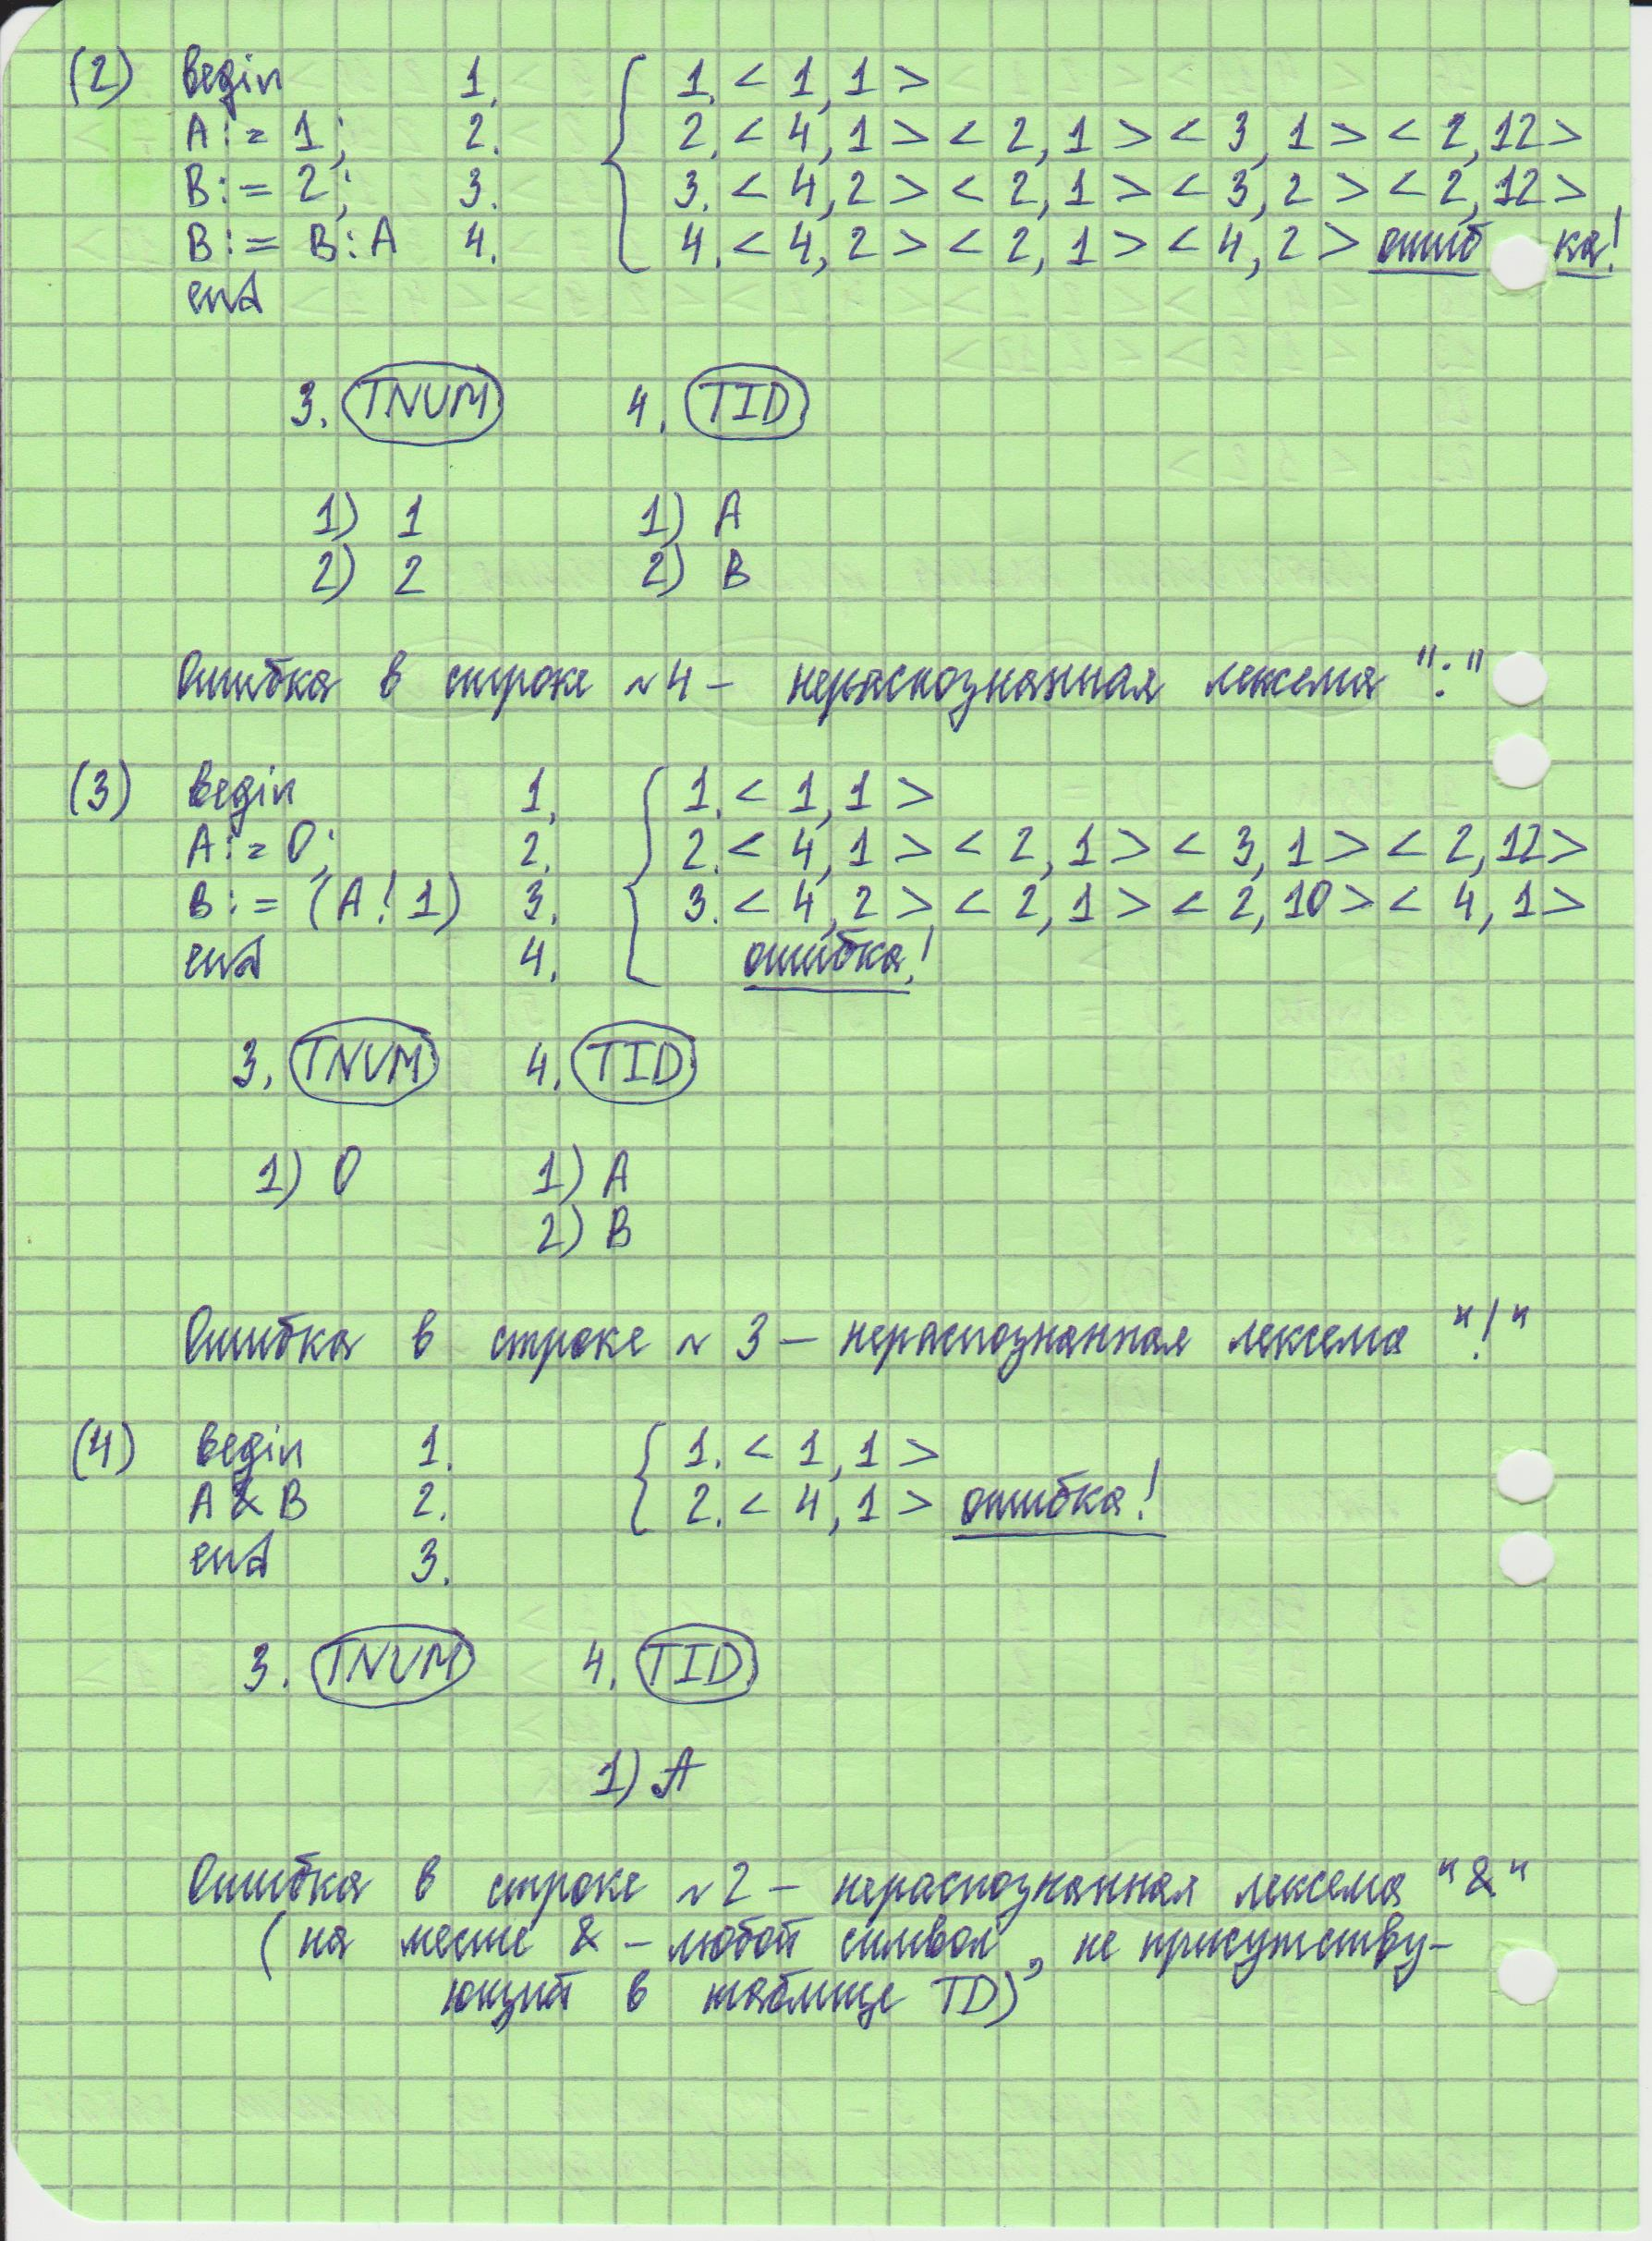 (2) begin 1. { 1. < 1, 1 >
A := 1; 2. 2. < 4, 1 > < 2, 1 > < 3, 1 > < 2, 12 >
B := 2; 3. 3. < 4, 2 > < 2, 1 > < 3, 2 > < 2, 12 >
B := B : A 4. 4. < 4, 2 > < 2, 1 > < 4, 2 > ошибка!
end
3. TNUM 4. TID
1) 1 1) A
2) 2 2) B
Ошибка в строке №4 – нераспознанная лексема ":"
(3) begin 1. { 1. < 1, 1 >
A := 0; 2. 2. < 4, 1 > < 2, 1 > < 3, 1 > < 2, 12 >
B := (A ! 1) 3. 3. < 4, 2 > < 2, 1 > < 2, 10 > < 4, 1 >
end 4. ошибка!
3. TNUM 4. TID
1) 0 1) A
2) B
Ошибка в строке № 3 – нераспознанная лексема "!"
(4) begin 1. { 1. < 1, 1 >
A & B 2. 2. < 4, 1 > ошибка!
end 3.
3. TNUM 4. TID
1) A
Ошибка в строке №2 – нераспознанная лексема "&"
(на месте & – любой символ, не присутству-
ющий в таблице TD)